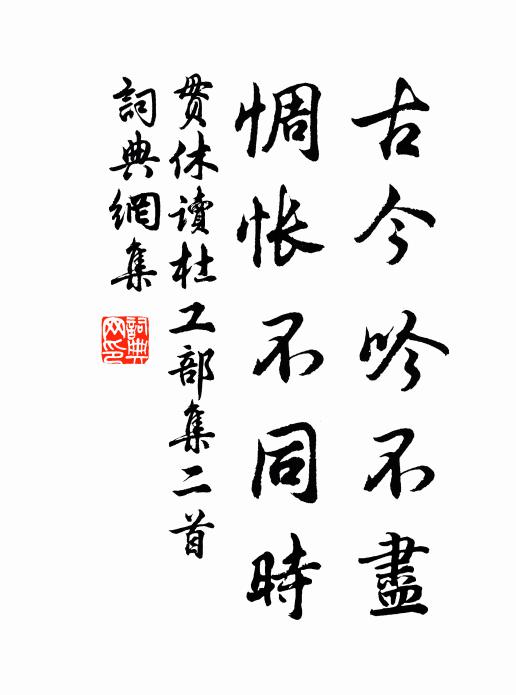 古今吟不盡
惆怅不同時
贯休讀杜工部集二首
詞典網集
詞典网印